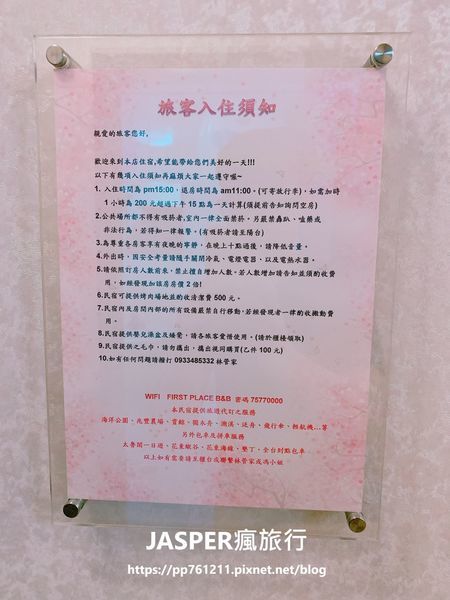 旅客入住須知
親愛的旅客您好,
歡迎來到本店住宿,希望能帶給您們美好的一天!!!
以下有幾項入住須知再麻煩大家一起遵守喔~
1. 入住時間為 pm15:00,退房時間為 am11:00。(可寄放行李),如需加時
1 小時為 200 元超過下午 15 點為一天計算(須提前告知詢問空房)
2.公共場所都不得有吸菸者,室內一律全面禁菸。另嚴禁轟趴、嗑藥或
非法行為,若得知一律報警。(有吸菸者請至陽台)
3.為尊重各房客享有夜晚的寧靜,在晚上十點過後,請降低音量。
4.外出時,因安全考量請隨手關閉冷氣、電燈電器、以及電熱水器。
5.請依照訂房人數前來,禁止擅自增加人數。若人數增加請告知並須酌收費
用,如經發現加該房房價 2 倍!
6.民宿可提供烤肉場地並酌收清潔費 500 元。
7.民宿內及房間內部的所有設備嚴禁自行移動,若經發現者一律酌收搬動費
用。
8.民宿提供嬰兒澡盆及矮凳,請各旅客愛惜使用。(請於櫃檯領取)
9.民宿提供之毛巾,請勿攜出,攜出視同購買(乙件 100 元)
10.如有任何問題請撥打 0933485332 林管家
WIFI FIRST PLACE B&B 密碼 75770000
本民宿提供旅遊代訂之服務
海洋公園、兆豐農場、賞鯨、獨木舟、溯溪、泛舟、飛行傘、輕航機...等
另外包車及拼車服務
太魯閣一日遊、花東縱谷、花東海線、墾丁、全台到點包車
以上如有需要請至櫃台或聯繫林管家或馮小姐
JASPER瘋旅行
https://pp761211.pixnet.net/blog